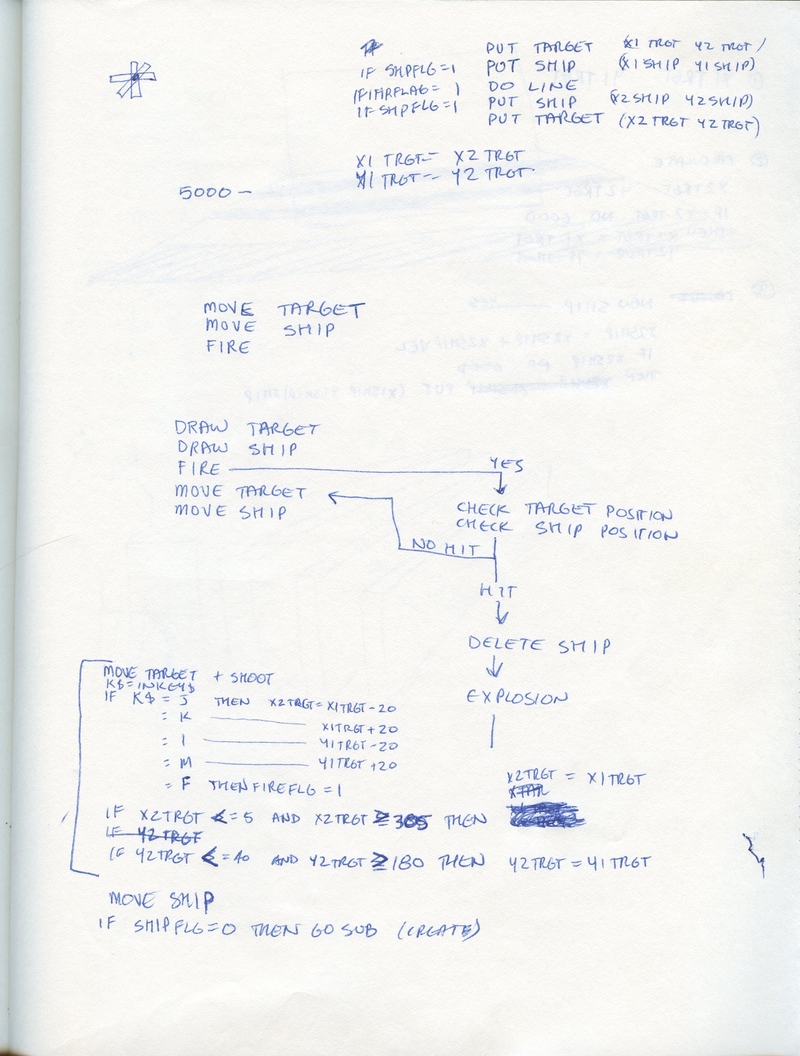 PUT TARGET (X1 TRGT Y2 TRGT/
IF SHPFLG=1 PUT SHIP (X1SHIP Y1SHIP)
IF FIRFLAG= 1 DO LINE
IF SHPFLG=1 PUT SHIP (X2SHIP Y2SHIP)
PUT TARGET (X2TRGT Y2TRGT)
X1 TRGT= X2 TRGT
Y1 TRGT= Y2 TRGT
5000 -
MOVE TARGET
MOVE SHIP
FIRE
DRAW TARGET
DRAW SHIP
FIRE YES
MOVE TARGET
MOVE SHIP
CHECK TARGET POSITION
CHECK SHIP POSITION
NO HIT
HIT
DELETE SHIP
EXPLOSION
MOVE TARGET + SHOOT
K$=INKEY$
IF K$ = J THEN X2TRGT=X1TRGT-20
= K X1TRGT+20
= I Y1TRGT-20
= M Y1TRGT+20
= F THEN FIREFLG =1
X2TRGT = X1TRGT
IF X2TRGT <=5 AND X2TRGT ≥305 THEN
IF Y2TRGT
IF Y2TRGT <=40 AND Y2TRGT ≥180 THEN Y2TRGT=Y1TRGT
MOVE SHIP
IF SHIPFLG=0 THEN GO SUB (CREATE)